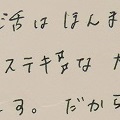 活はほんま
ステキな
す。だから